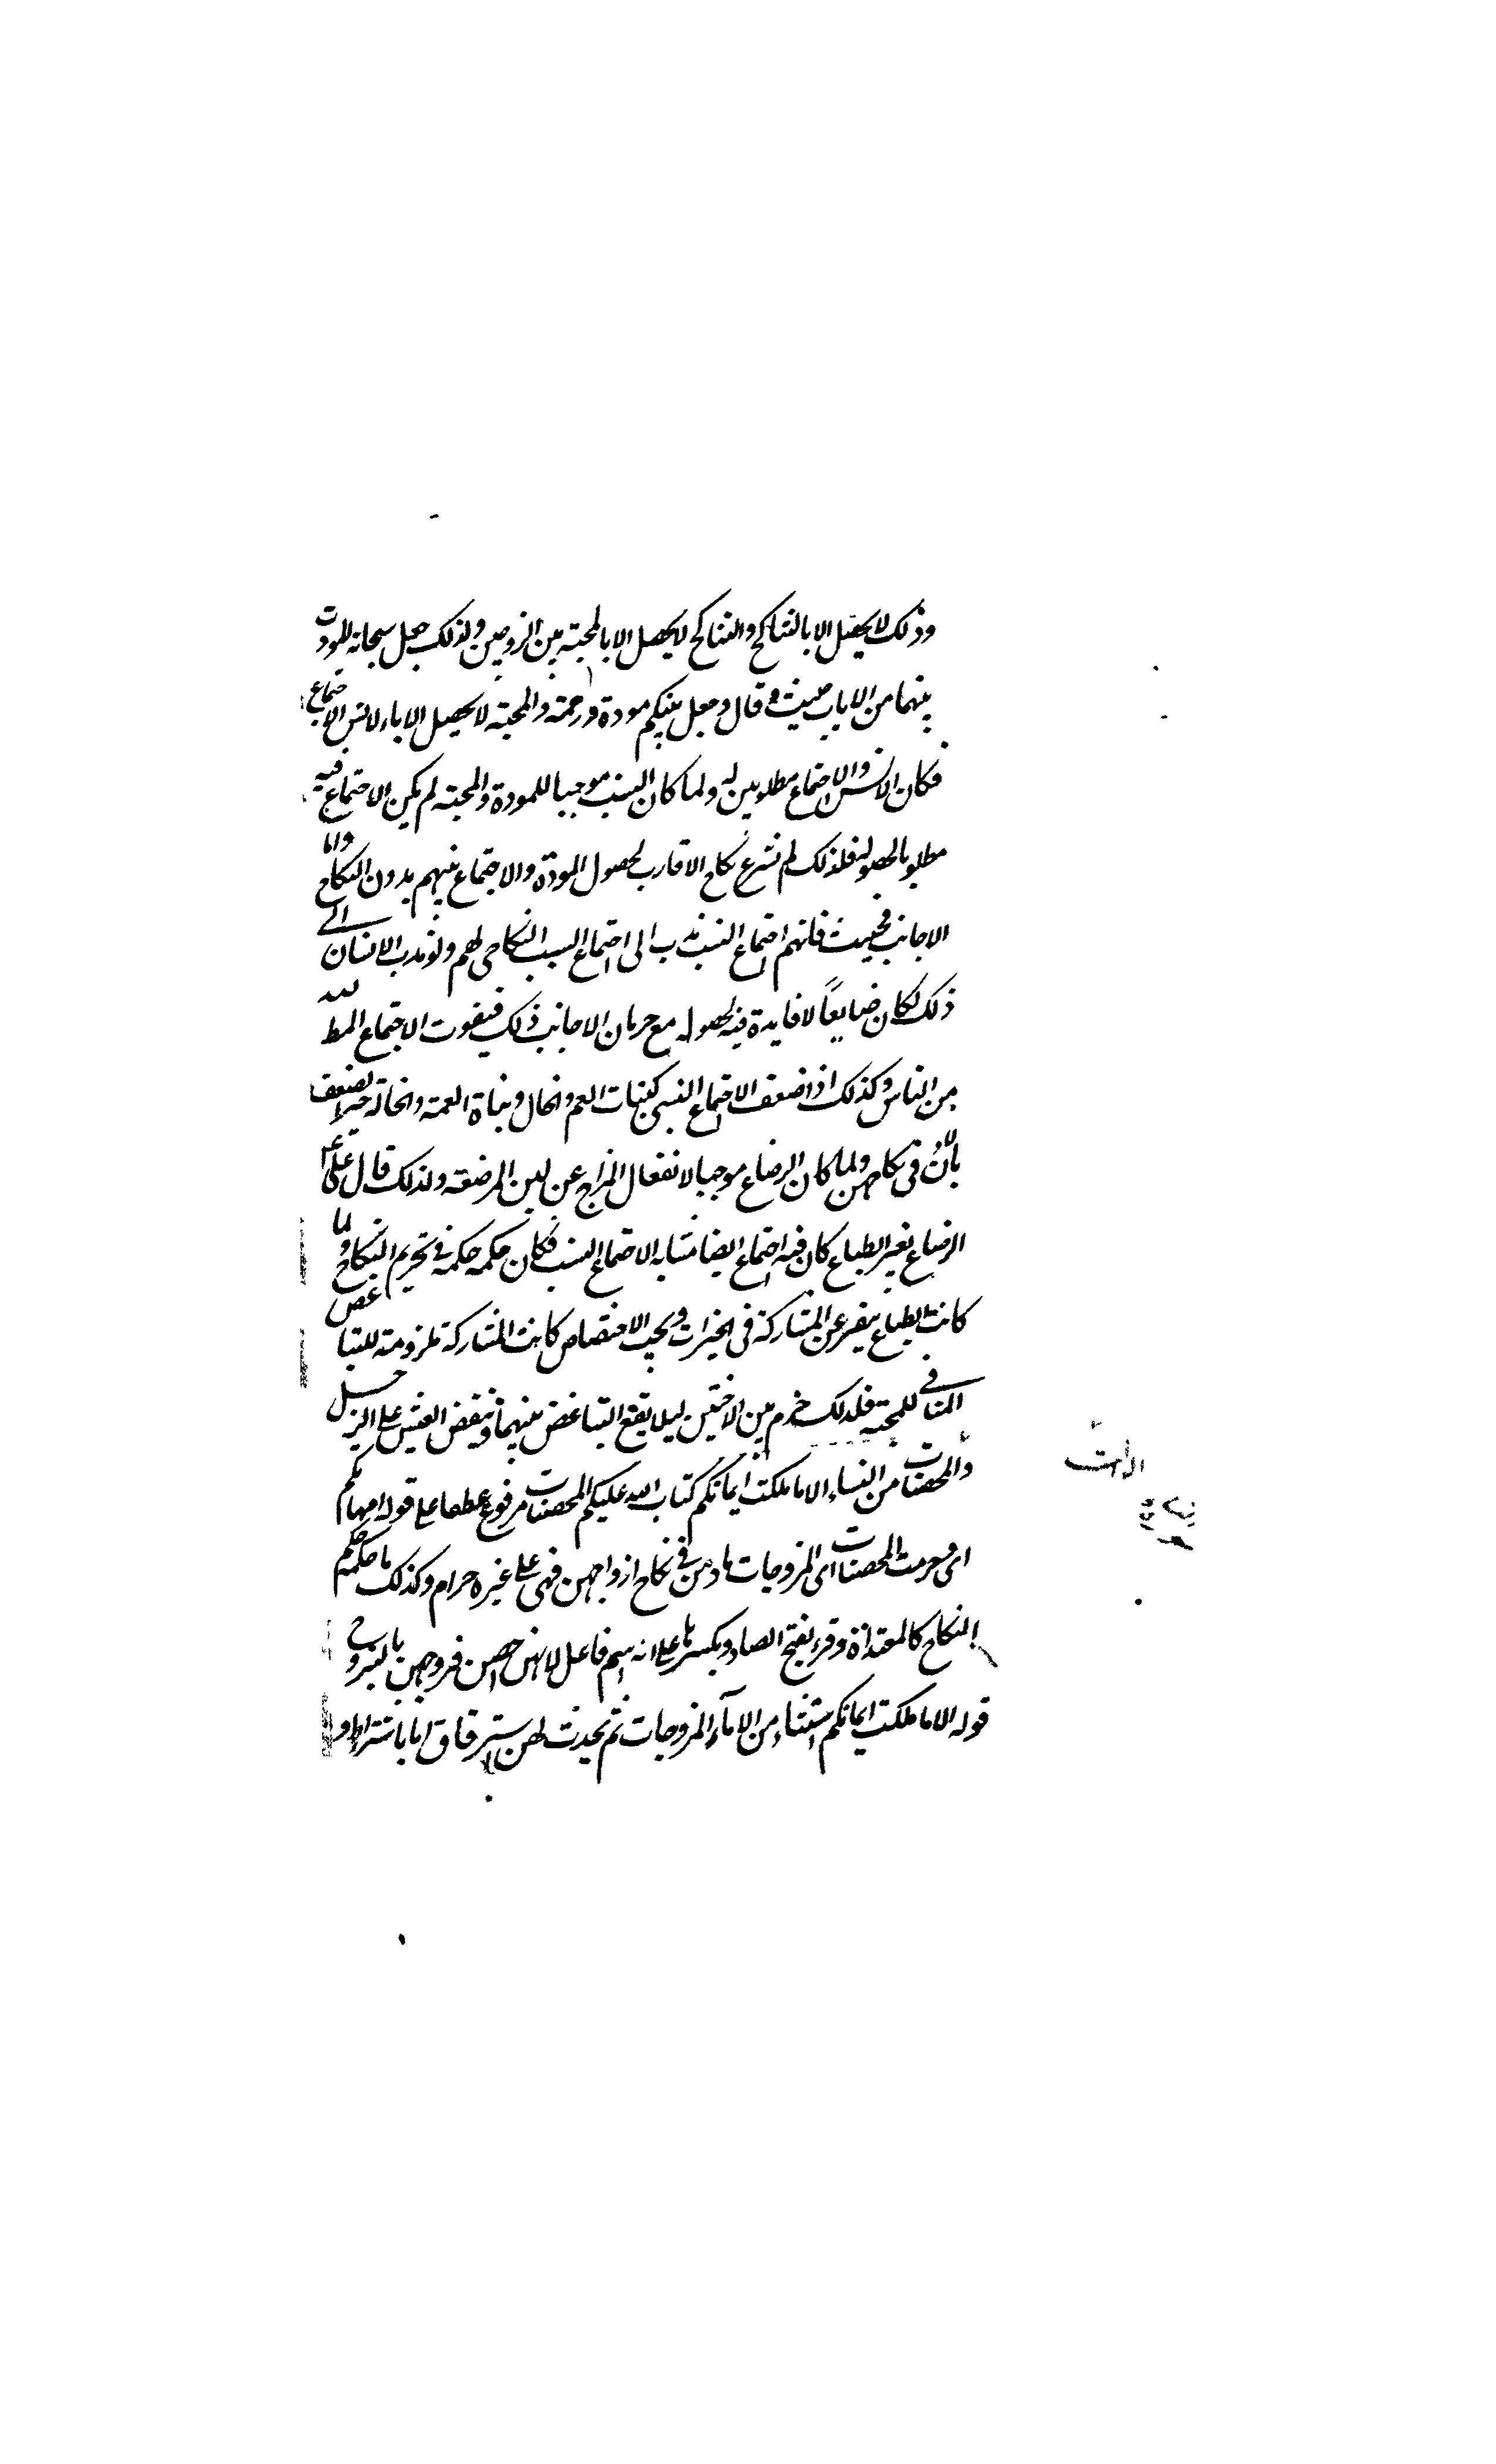 وذلك لا يحصل الا بالتناكح والتناكح لا يحصل الا بالمحبة بين الزوجين ولذلك جعل سبحانه المودت
بينهما من الايات حيث قال وجعل بينكم مودة ورحمة والمحبة لا يحصل الا بالانس الاجتماع
فكان الانس والاجتماع مطلوبين له ولما كان النسب موجبا للمودة والمحبة لم يكن الاجتماع فيه
مطلوبا لحصوله فلذلك لم تشرع نكاح الاقارب لحصول المودة والاجتماع بينهم بدون النكاح واما
الاجانب فحيث فاتهم اجتماع النسب ندب الى اجتماع السبب النكاحي لهم ولو ندب الانسان الى
ذلك لكان ضايعاً لا فايدة فيه لحصوله مع حرمان الاجانب ذلك فيفوت الاجتماع المط لله
من الناس وكذلك اذا ضعف الاجتماع النسبي كبنات العم والخال وبناة العمة والخالة لضعف
في نكاحهن ولما كان الرضاع موجبا لانفعال المزاج عن لبن المرضعة ولذلك قال على
الرضاع يغير الطباع كان فيه اجتماع ايضا مشابه الاجتماع النسب فكان حكمه حكمه في تحريم النكاح ولما
كانت الطباع ينفر عن المشاركة في الخيرات ويحب الاختصاص كانت المشاركة ملزومة للتباغض
المنافي للمحبة فلذلك حرم بين الاختين ليلا يقع التباغض بينهما وينغض العيش على الرجل
والمحصنات من النساء الا ما ملكت ايمانكم كتاب الله عليكم المحصنات مرفوع عطفا على قوله امهاتكم
اى وحرمت المحصنات اى المزوجات ما دمن في نكاح ازواجهن فهى على غيره حرام وكذلك ما حكمه حكم
النكاح كالمعتداة وقرء بفتح الصاد وبكسرها على انه اسم فاعل لانهن احصن فروجهن بالتزويج
قوله الا ما ملكت ايمانكم استثناء من الاماء المزوجات ثم يحدث لهن استرقاق اما باشتراء او